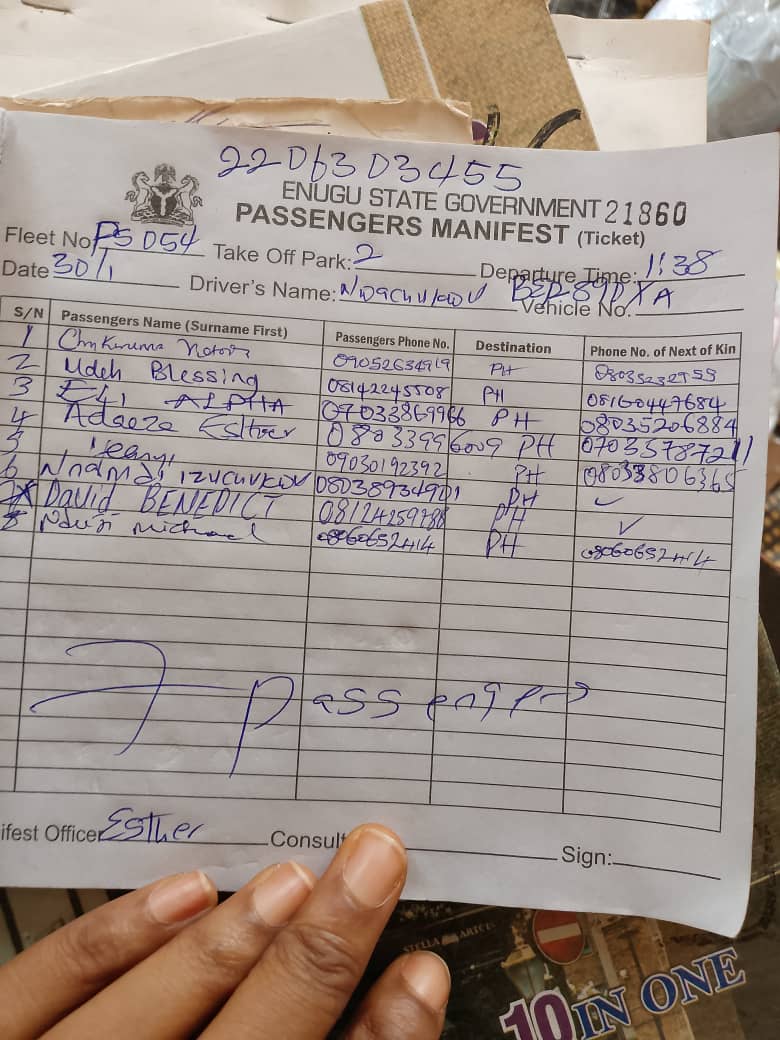 2206303455
ENUGU STATE GOVERNMENT 21860
PASSENGERS MANIFEST (Ticket)
Fleet No PS 054 Take Off Park: 2 Departure Time: 1:38
Date 30/1 Driver's Name: Vehicle No.
S/N Passengers Name (Surname First) Passengers Phone No. Destination Phone No. of Next of Kin
1 PH
2 Udeh Blessing 08142245508 PH 08160447684
3 ALPHA 07033869966 PH 08035206884
4 Adaeze Esther 08033996009 PH 07035787211
5 09030192392 PH 08033806365
6 Nnamdi 08038934901 PH ✓
DAVID BENEDICT 08124259788 PH ✓
8 Michael 08060652414 PH 08060652414
7 passengers
ifest Officer Esther Consult Sign:
STELLA ARTOIS
10 IN ONE